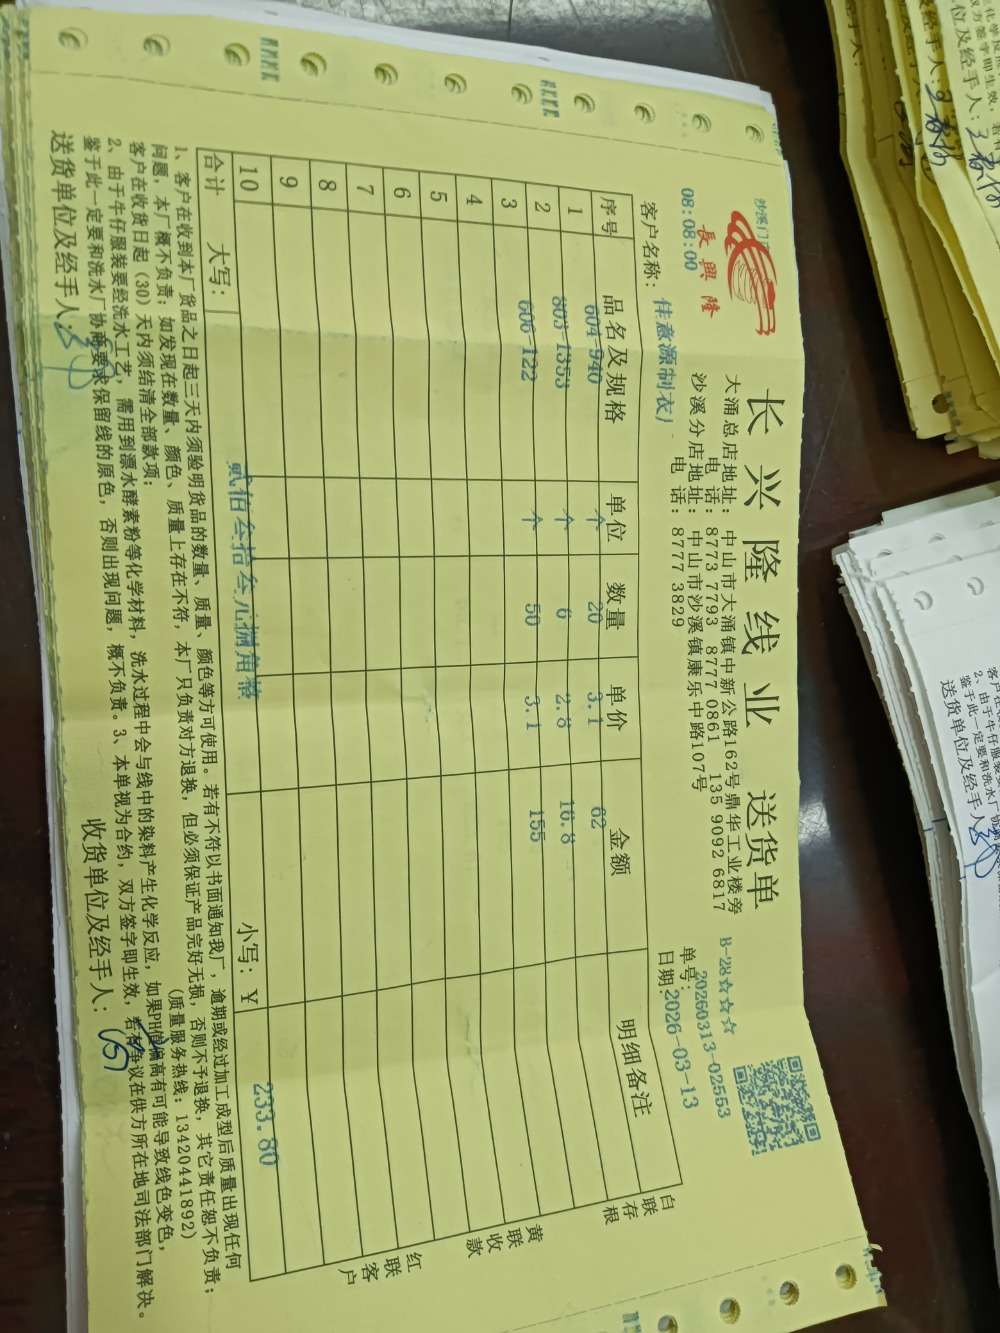 沙溪门市
長興隆
08:08:00
长兴隆线业 送货单
大涌总店地址: 中山市大涌镇中新公路162号鼎华工业楼旁
电话: 8773 7793 8777 0861 135 9092 6817
沙溪分店地址: 中山市沙溪镇康乐中路107号
电话: 8777 3829
B-28☆☆☆
单号: 20260313-02553
日期: 2026-03-13
客户名称: 佳意源制衣厂
序号 品名及规格 单位 数量 单价 金额 明细备注
1 604-940 个 20 3.1 62
2 803-1353 个 6 2.8 16.8
3 606-122 个 50 3.1 155
4
5
6
7
8
9
10
合计 大写: 贰佰叁拾叁元捌角整 小写: ¥ 233.80
白联存根
黄联收款
红联客户
1、客户在收到本厂货品之日起三天内须验明货品的数量、质量、颜色等方可使用。若有不符以书面通知我厂,逾期或经过加工成型后质量出现任何
问题,本厂概不负责;如发现在数量、颜色、质量上存在不符,本厂只负责对方退换,但必须保证产品完好无损,否则不予退换,其它责任恕不负责;
客户在收货日起(30)天内须结清全部款项; (质量服务热线:13420441892)
2、由于牛仔服装要经洗水工艺,需用到漂水酵素粉等化学材料,洗水过程中会与线中的染料产生化学反应,如果PH值偏高有可能导致线色变色,
鉴于此一定要和洗水厂协商要求保留线的原色,否则出现问题,概不负责。3、本单视为合约,双方签字即生效,若有争议在供方所在地司法部门解决。
送货单位及经手人: 收货单位及经手人:
位及经手人:
双方签字即生效,
经手人:
客户在收
2、由于牛仔服
鉴于此一定要和洗水厂协
送货单位及经手人